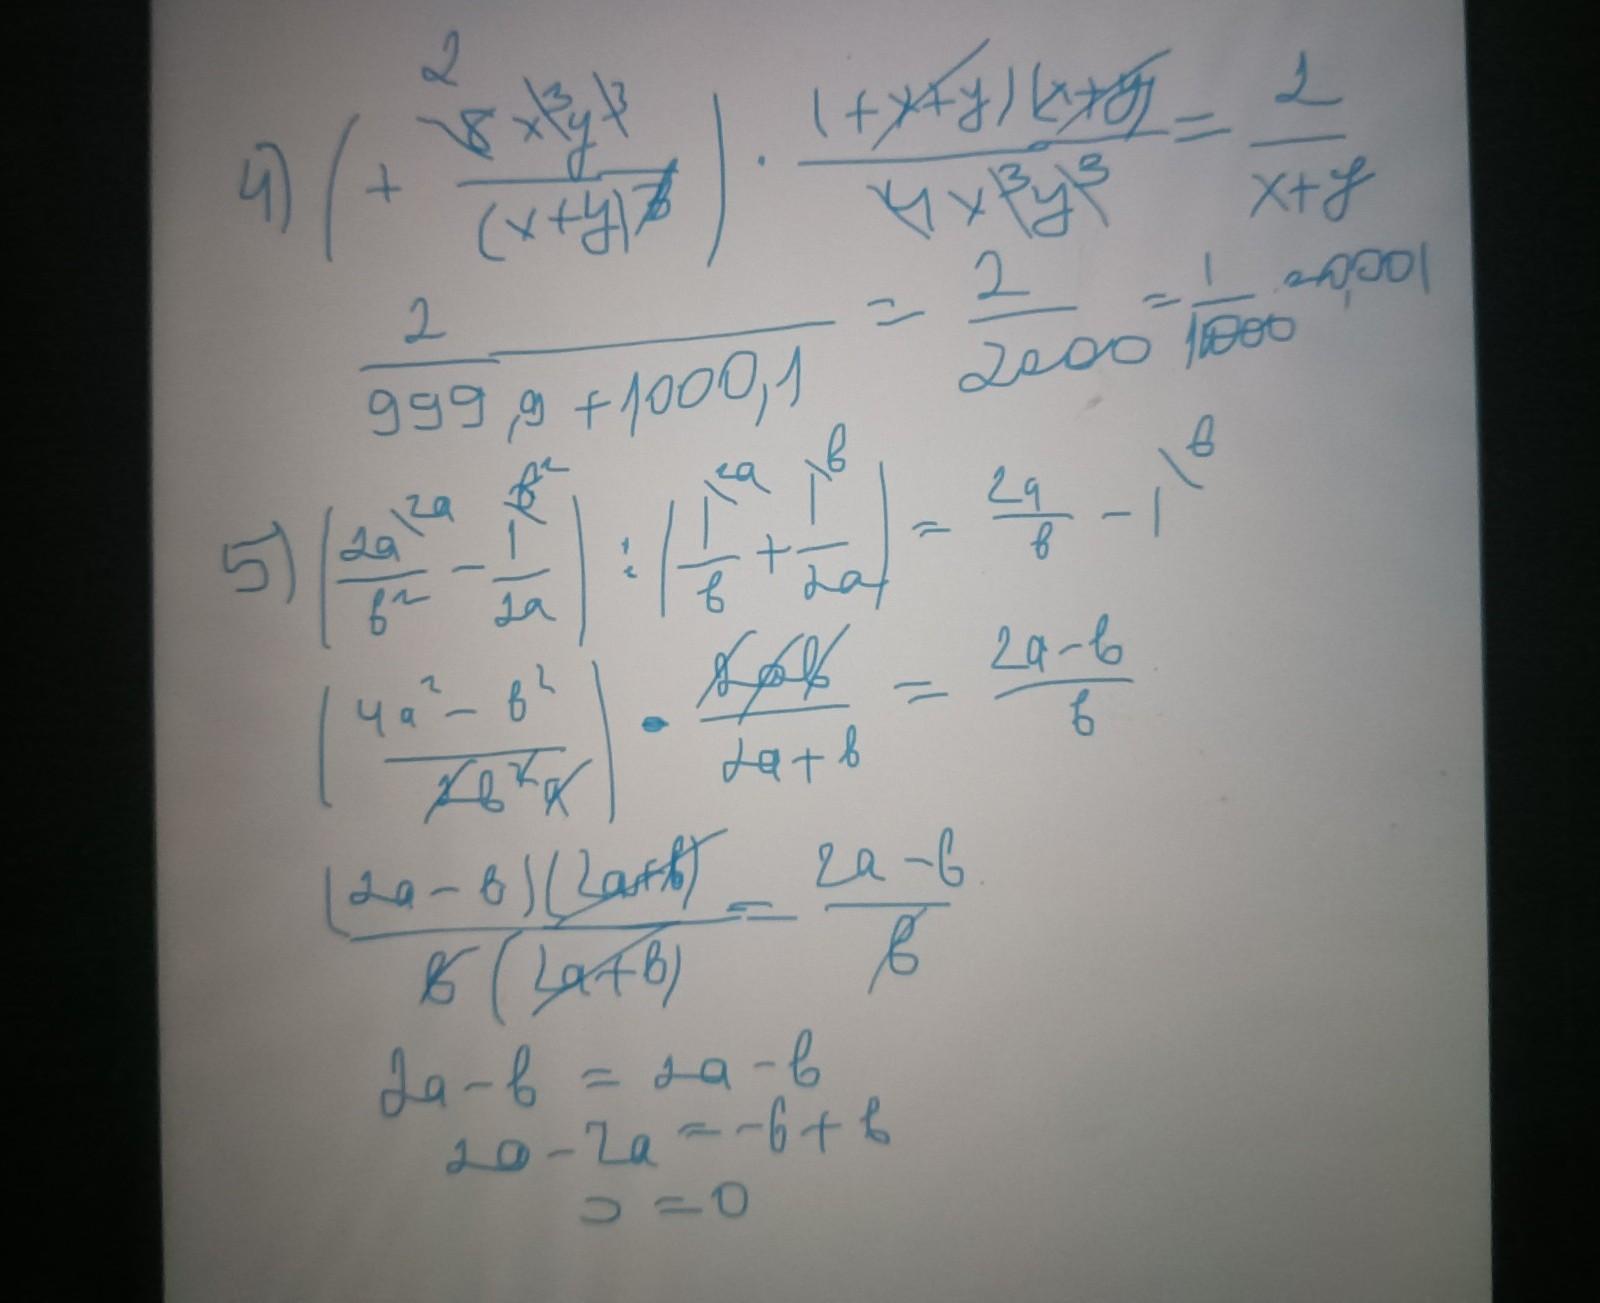 4) (+ 2 8x³y³/(x+y)²) · (1+x+y)(x+y)/4x³y³ = 2/x+y
2/999,9+1000,1 = 2/2000 = 1/1000 = 0,001
5) (2a\2a/b² - 1\b²/2a) : (1\2a/b + 1\b/2a) = 2a/b - 1\b
(4a² - b²/2b²a) · 2ab/2a+b = 2a-b/b
(2a-b)(2a+b)/b(2a+b) = 2a-b/b
2a-b = 2a-b
2a-2a = -b+b
0=0